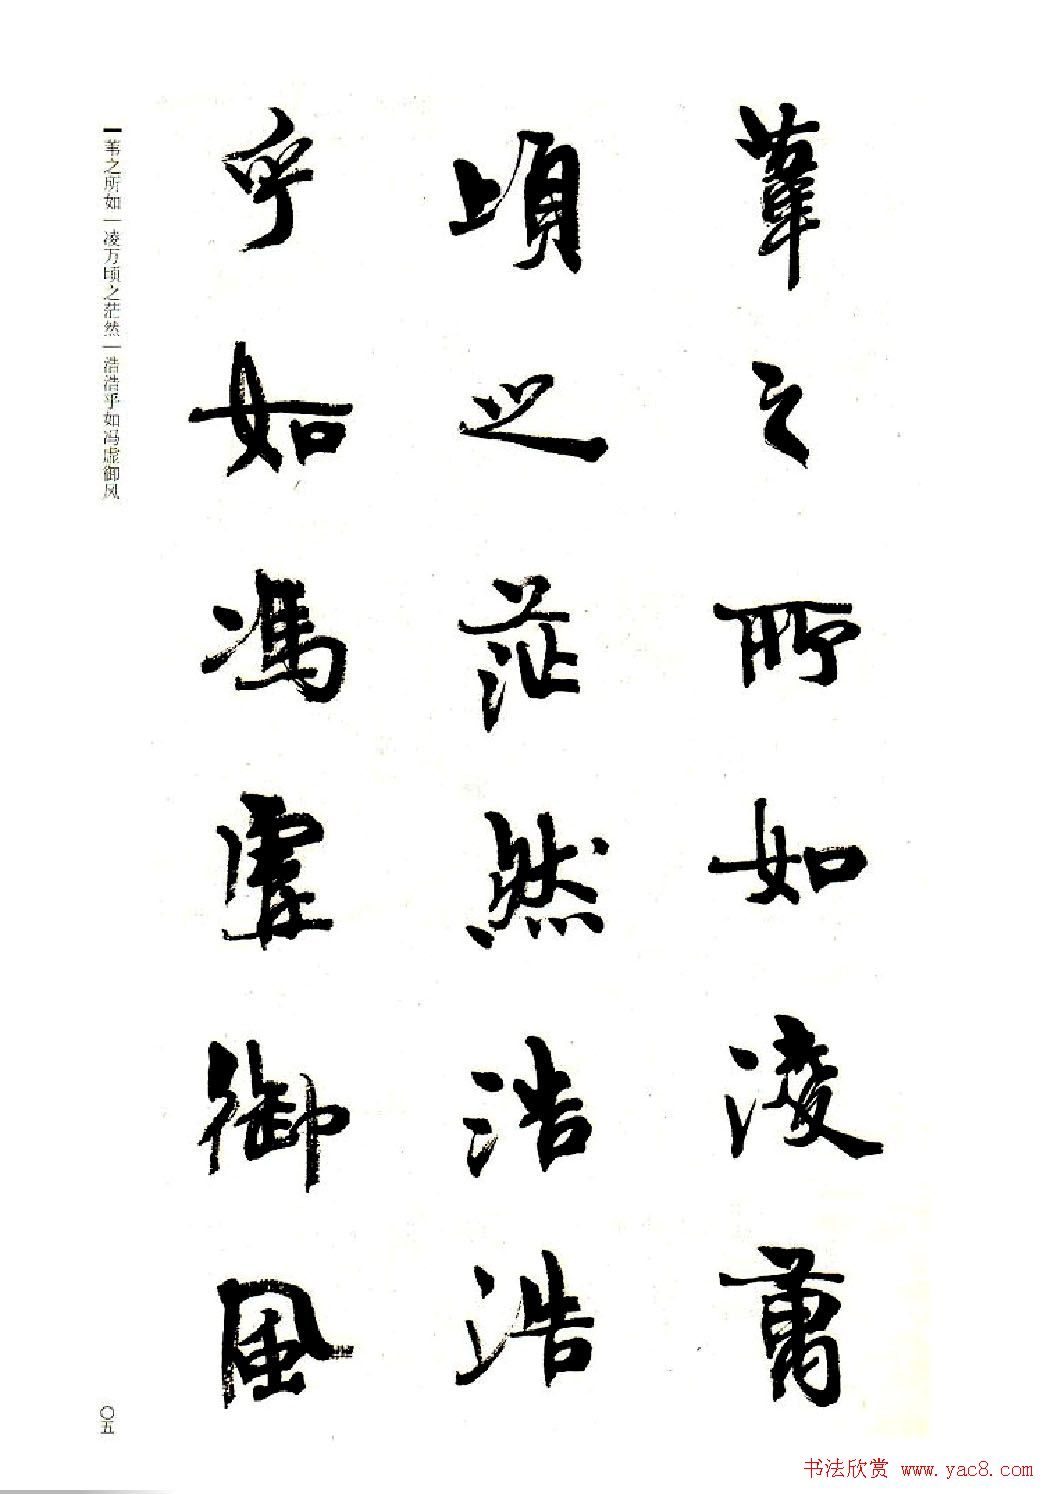 葦之所如凌萬
頃之茫然浩浩
乎如馮虛御風
苇之所如|凌万顷之茫然|浩浩乎如冯虚御风
〇五
书法欣赏 www.yac8.com